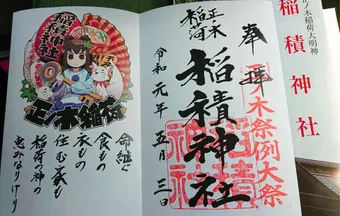 奉拝
正ノ木
稲荷
稲積神社
令和元年五月三日
正ノ木祭例大祭
稲積神社
正ノ木稲荷
命継ぐ
食もの
衣もの
住む家も
稲荷の神の
恵みなりけり
ノ木稲荷大明神
稲積神社